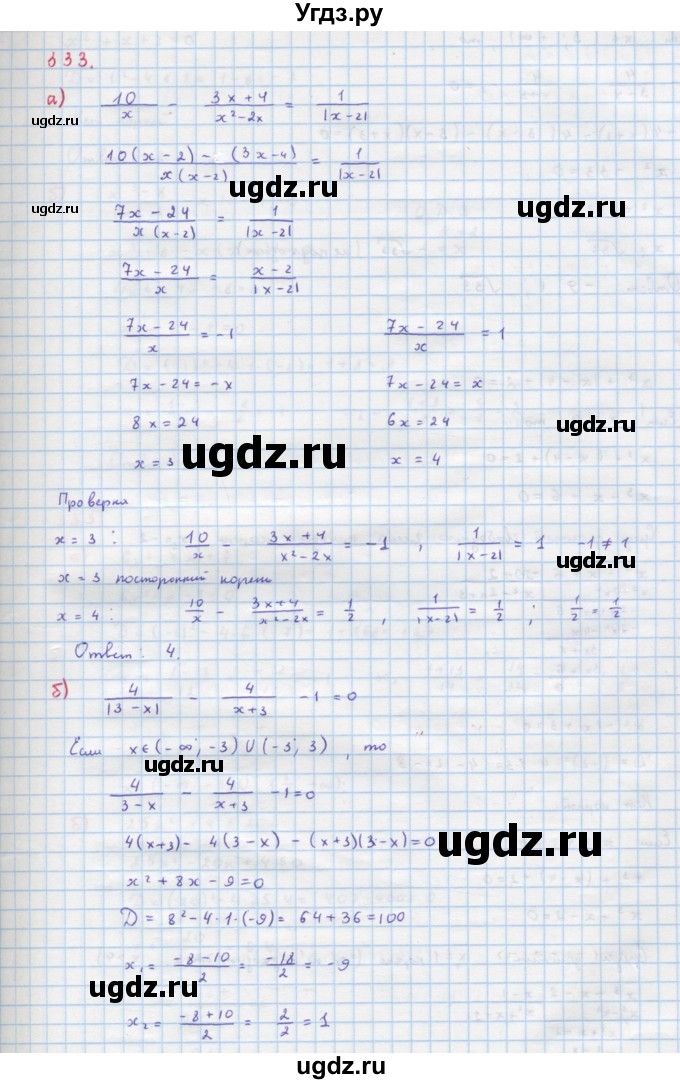 Угдз.ру
833.
а) 10/x - (3x+4)/(x²-2x) = 1/|x-2|
ugdz.ru
(10(x-2) - (3x-4))/(x(x-2)) = 1/|x-2|
ugdz.ru ugdz.ru
ugdz.ru ugdz.ru
(7x-24)/(x(x-2)) = 1/|x-2|
(7x-24)/x = (x-2)/|x-2|
ugdz.ru
(7x-24)/x = -1 (7x-24)/x = 1
7x-24 = -x 7x-24 = x
8x = 24 6x = 24
ugdz.ru
x = 3 x = 4
ugdz.ru
Проверка
x = 3: 10/x - (3x+4)/(x²-2x) = -1, 1/|x-2| = 1 -1 ≠ 1
ugdz.ru
x = 3 посторонний корень
x = 4: 10/x - (3x+4)/(x²-2x) = 1/2, 1/|x-2| = 1/2; 1/2 = 1/2
Ответ: 4.
б) 4/|3-x| - 4/(x+3) - 1 = 0
Если x∈(-∞; -3)∪(-3; 3), то
ugdz.ru
4/(3-x) - 4/(x+3) - 1 = 0
4(x+3) - 4(3-x) - (x+3)(3-x) = 0
ugdz.ru
x² + 8x - 9 = 0
D = 8² - 4·1·(-9) = 64 + 36 = 100
x₁ = (-8-10)/2 = -18/2 = -9
ugdz.ru
x₂ = (-8+10)/2 = 2/2 = 1
ugdz.ru